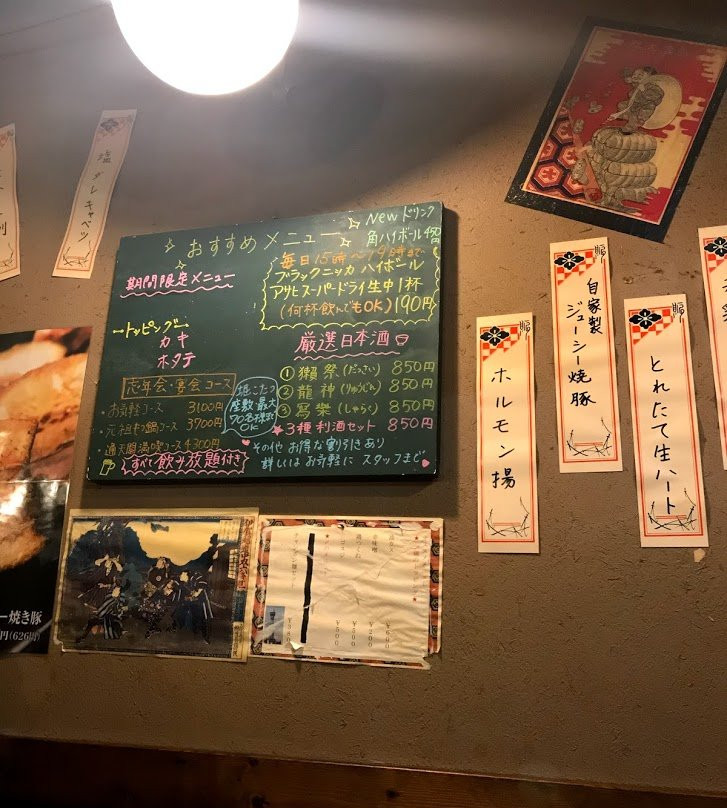 塩ダレキャベツ
おすすめメニュー
Newドリンク
角ハイボール450円
期間限定メニュー
毎日15時〜19時まで
ブラックニッカ ハイボール
アサヒスーパードライ生中1杯
(何杯飲んでもOK)190円
トッピング
カキ
ホタテ
厳選日本酒
①獺祭(だっさい) 850円
②龍神(りゅうじん) 850円
③寫樂(しゃらく) 850円
★3種利酒セット 850円
忘年会・宴会コース
・お気軽コース 3100円
・元祖もつ鍋コース 3700円
・通天閣満喫コース 4300円
すべて飲み放題付き
掘こたつ
座敷最大
70名様まで
OK
その他 お得な割引きあり
詳しくはお気軽に スタッフまで
ホルモン揚
自家製
ジューシー焼豚
とれたて生ハート
ー焼き豚
円(626円)